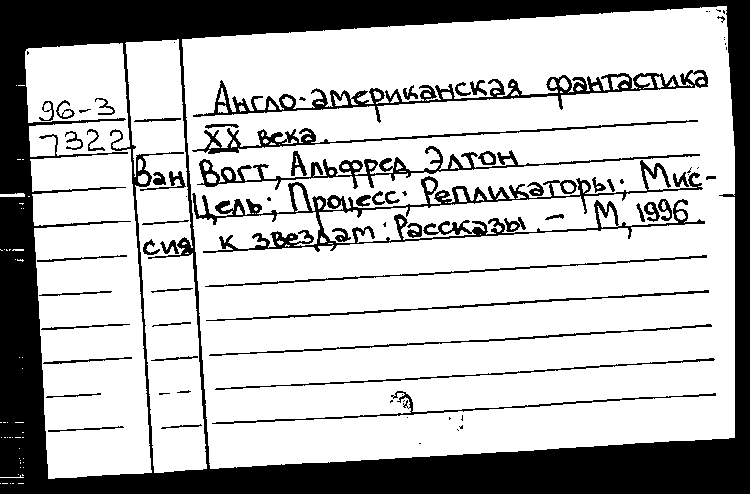 Англо-американская фантастика
96-3
7322 XX века.
Ван Вогт, Альфред Элтон
Цель; Процесс; Репликаторы; Мис-
сия к звездам: Рассказы. - М., 1996.